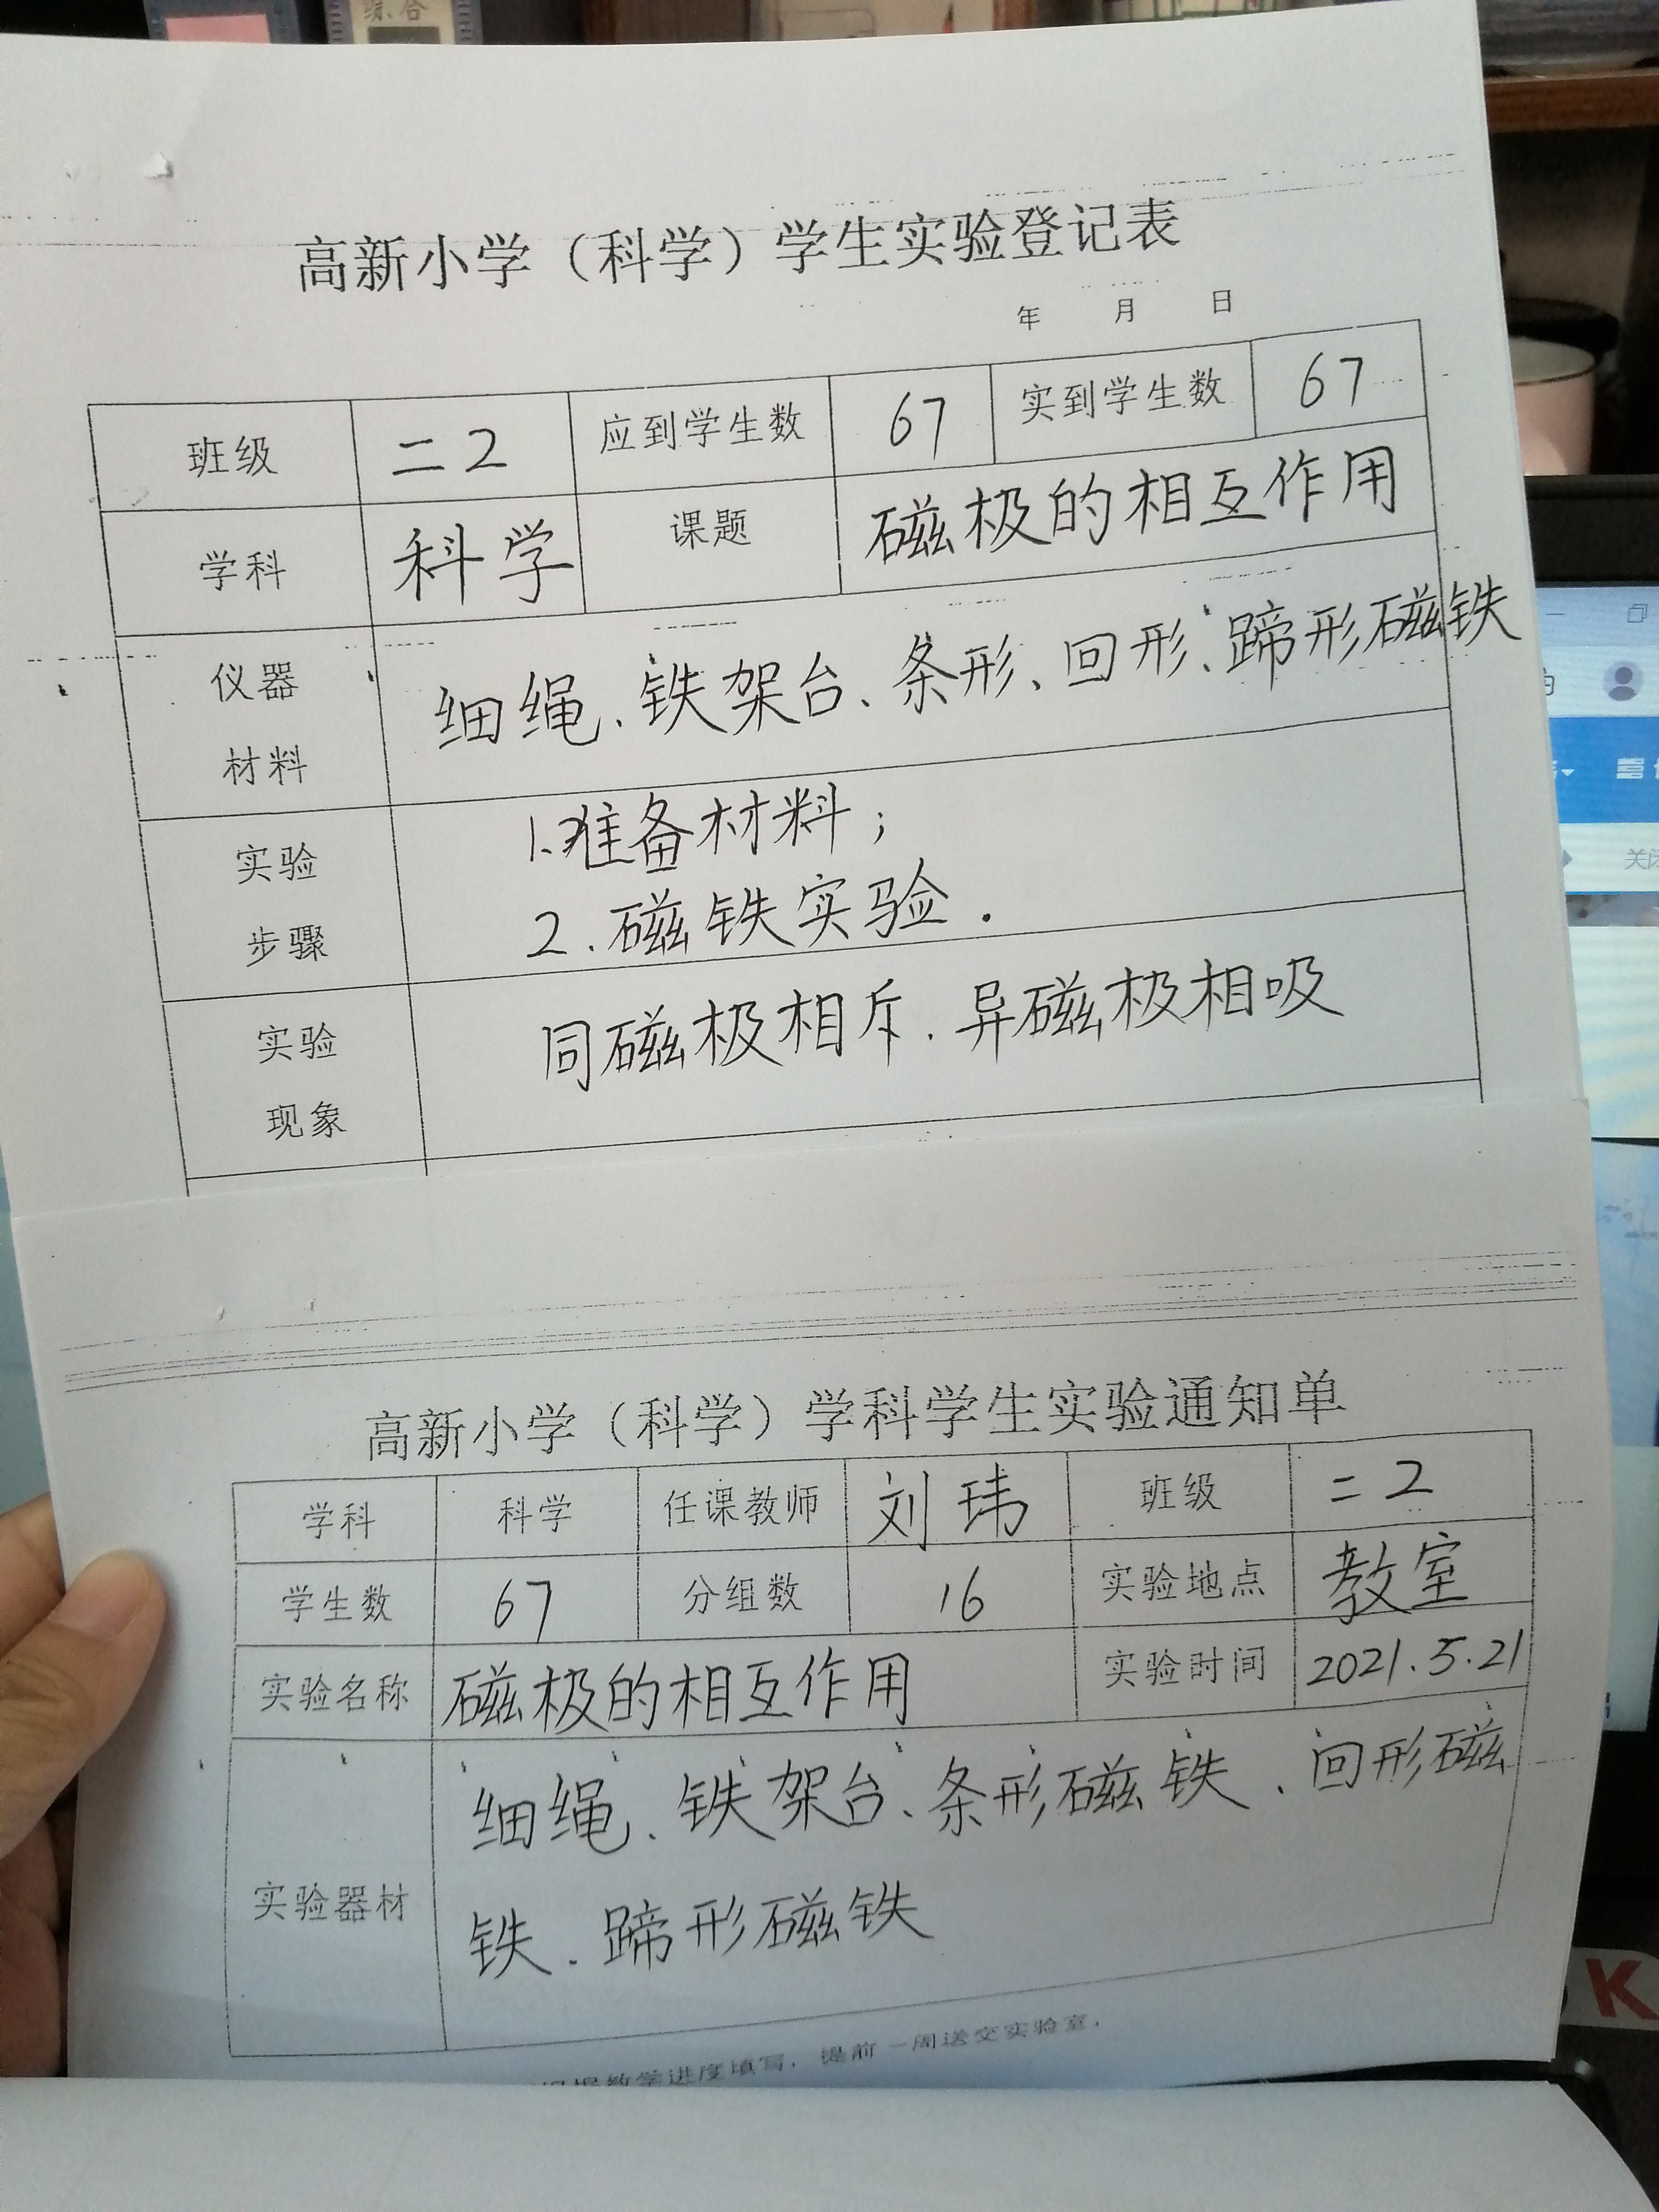 综合
高新小学（科学）学生实验登记表
年 月 日
班级 二2 应到学生数 67 实到学生数 67
学科 科学 课题 磁极的相互作用
仪器
材料
细绳、铁架台、条形、回形、蹄形磁铁
实验
步骤
1.准备材料；
2.磁铁实验.
实验
现象
同磁极相斥.异磁极相吸
高新小学（科学）学科学生实验通知单
学科 科学 任课教师 刘玮 班级 二2
学生数 67 分组数 16 实验地点 教室
实验名称 磁极的相互作用 实验时间 2021.5.21
实验器材
细绳、铁架台、条形磁铁、回形磁
铁、蹄形磁铁
教学进度填写，提前一周送交实验室，
关闭
K